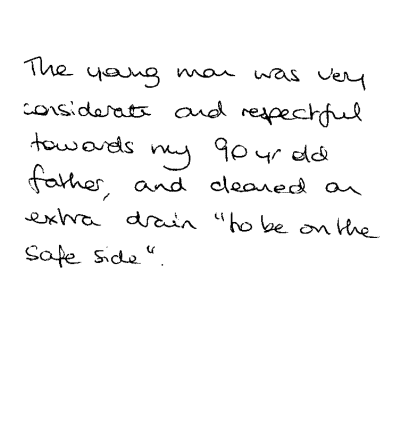 The young man was very
considerate and respectful
towards my 90 yr old
father, and cleared an
extra drain "to be on the
safe side".